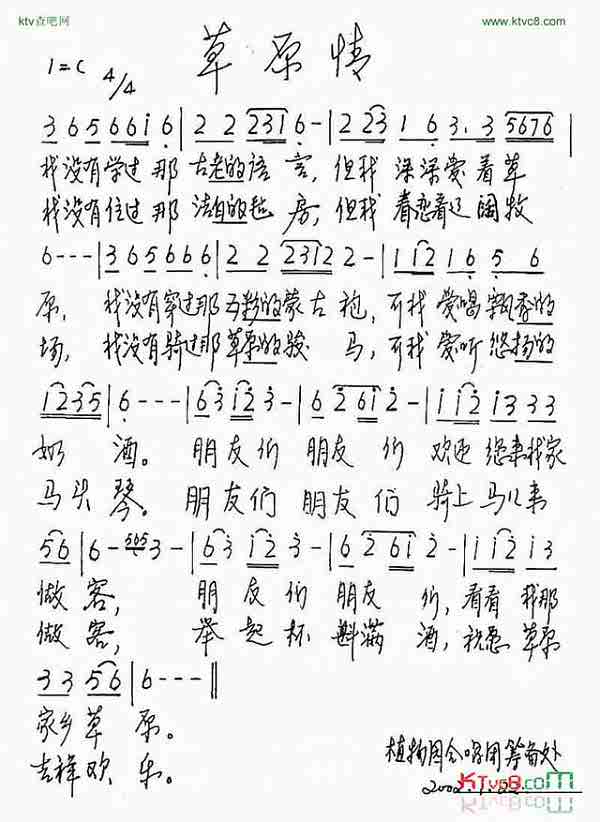 ktv查吧网
www.ktvc8.com
草原情
1=C 4/4
3 6 5 6 6 i 6 | 2 2 2 3 1 6 - | 2 2 3 1 6 3. 3 5 6 7 6 |
我没有学过那古老的语言,但我深深爱着草
我没有住过那洁白的毡房,但我看恋着辽阔牧
6 - - - | 3 6 5 6 6 6 | 2 2 2 3 1 2 2 - | 1 1 2 1 6 5 6
原,我没有穿过那五彩的蒙古袍,可我爱喝飘香的
场,我没有骑过那草原的骏马,可我爱听悠扬的
1 2 3 5 | 6 - - - | 6 3 i 2 3 - | 6 2 6 i 2 - | i i 2 i 3 3 3
奶酒。朋友们朋友们欢迎您来我家
马头琴。朋友们朋友们骑上马儿来
5 6 | 6 - 5 6 5 3 - | 6 3 i 2 3 - | 6 2 6 i 2 - | i i 2 i 3
做客,朋友们朋友们,看看我那
做客,举起杯斟满酒,祝愿草原
3 3 5 6 | 6 - - - ‖
家乡草原。
吉祥欢乐。
植物园合唱团筹备处
2002.1.22.
KTvc8.com